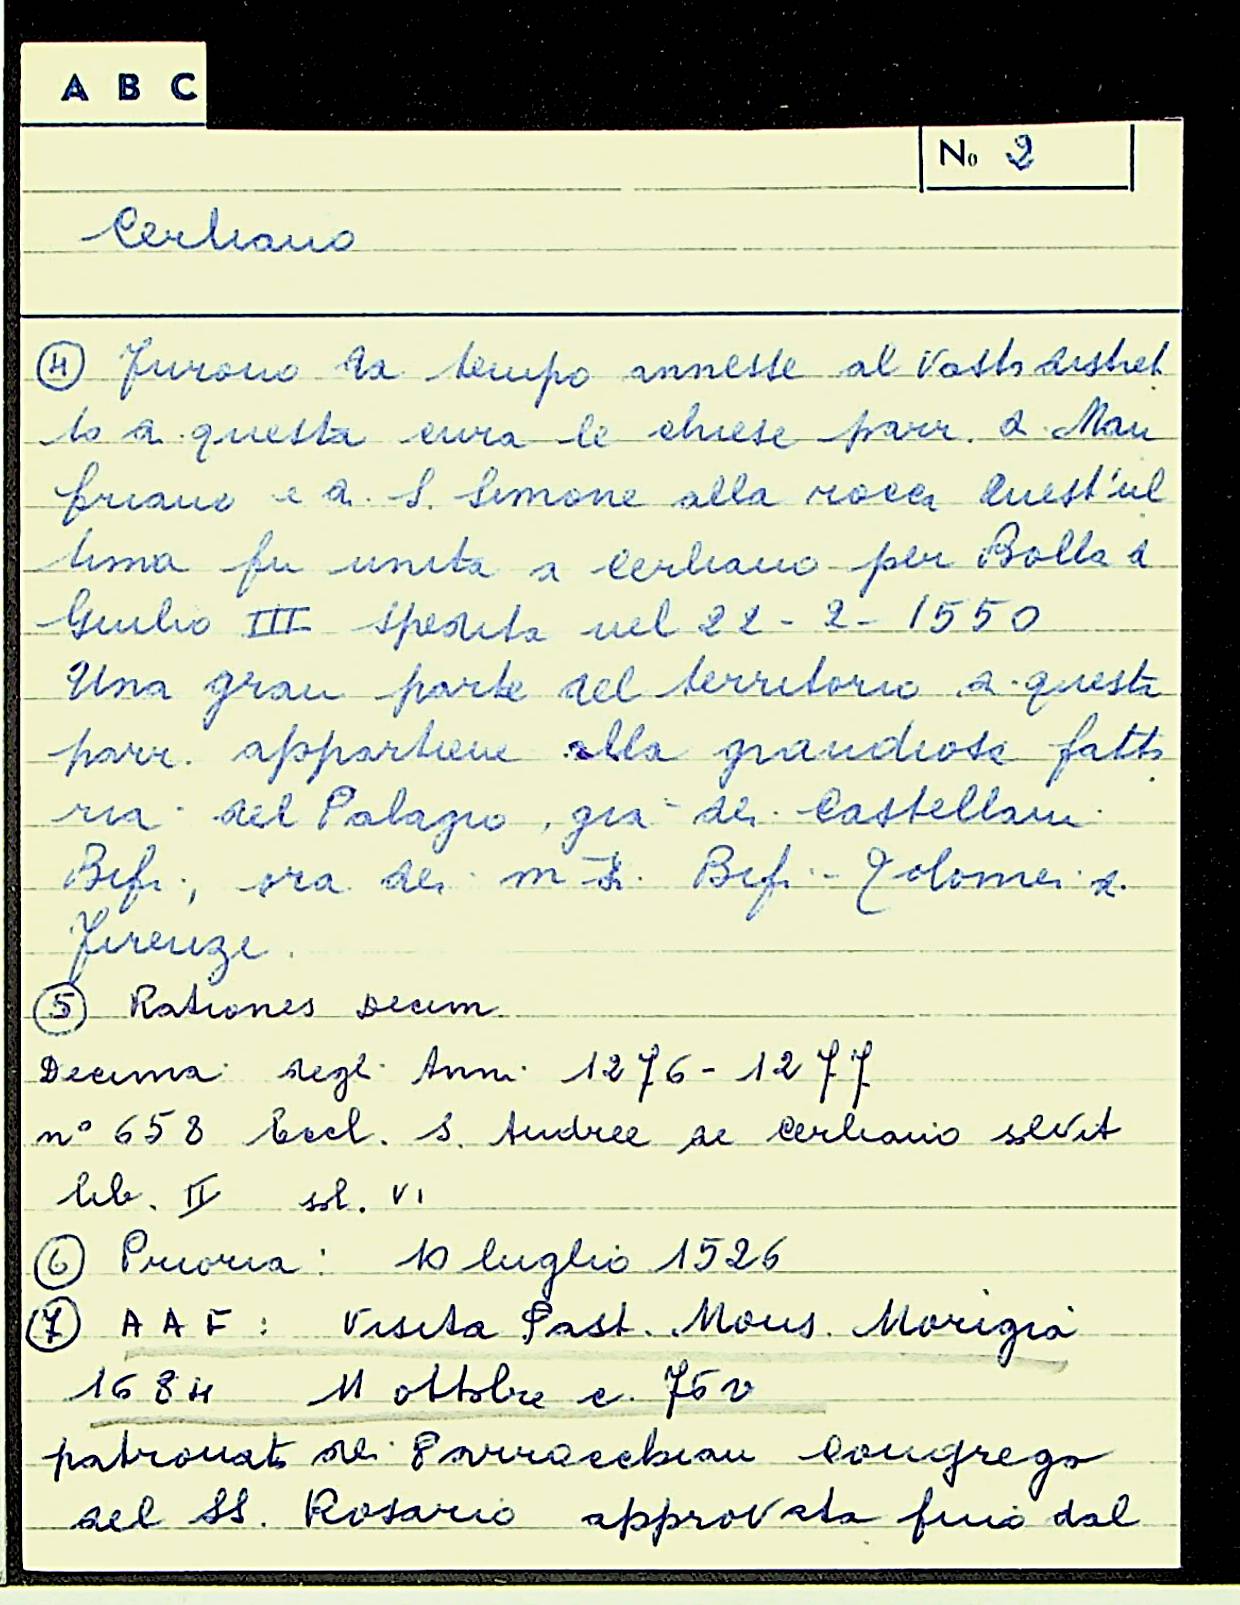 A B C
No 2
Cerliano
④ Furono da tempo annesse al vasto distret
to di questa cura le chiese parr. di Man
friano e di S. Simone alla rocca Quest'ul
tima fu unita a Cerliano per Bolla di
Giulio III spedita nel 22-2-1550
Una gran parte del territorio di questa
parr. appartiene alla grandiosa fatto
ria del Palagio, già dei Castellani
Bifi, ora dei Bifi-Tolomei di
Firenze.
⑤ Rationes Decim.
Decima degli Anni 1276-1277
n° 658 Eccl. S. Andree de Cerliano solvit
lib. II sol. VI
⑥ Prioria: 10 luglio 1526
⑦ A A F: Visita Past. Mons. Morigia
1684 11 ottobre c. 76 v
patronato dei Parrocchiani Congrega
del SS. Rosario approvata fino dal